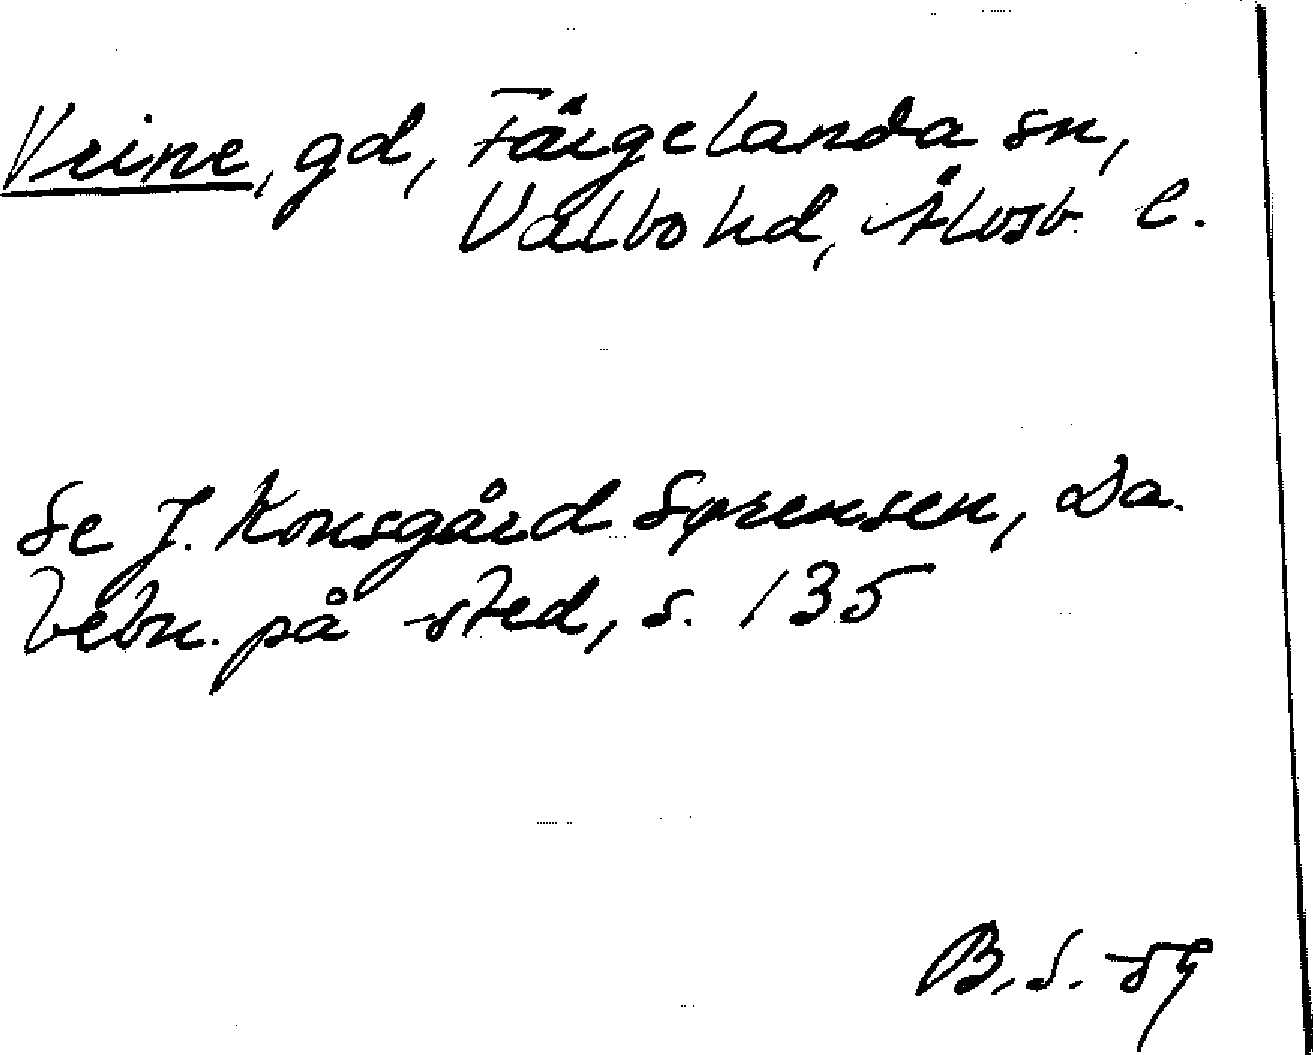 Vrine, gd, Färgelanda sn,
Valbo hd, Älvsb. l.
Se J. Kousgård Sørensen, Da.
bebn. på -sted, s. 135
B. S. -59